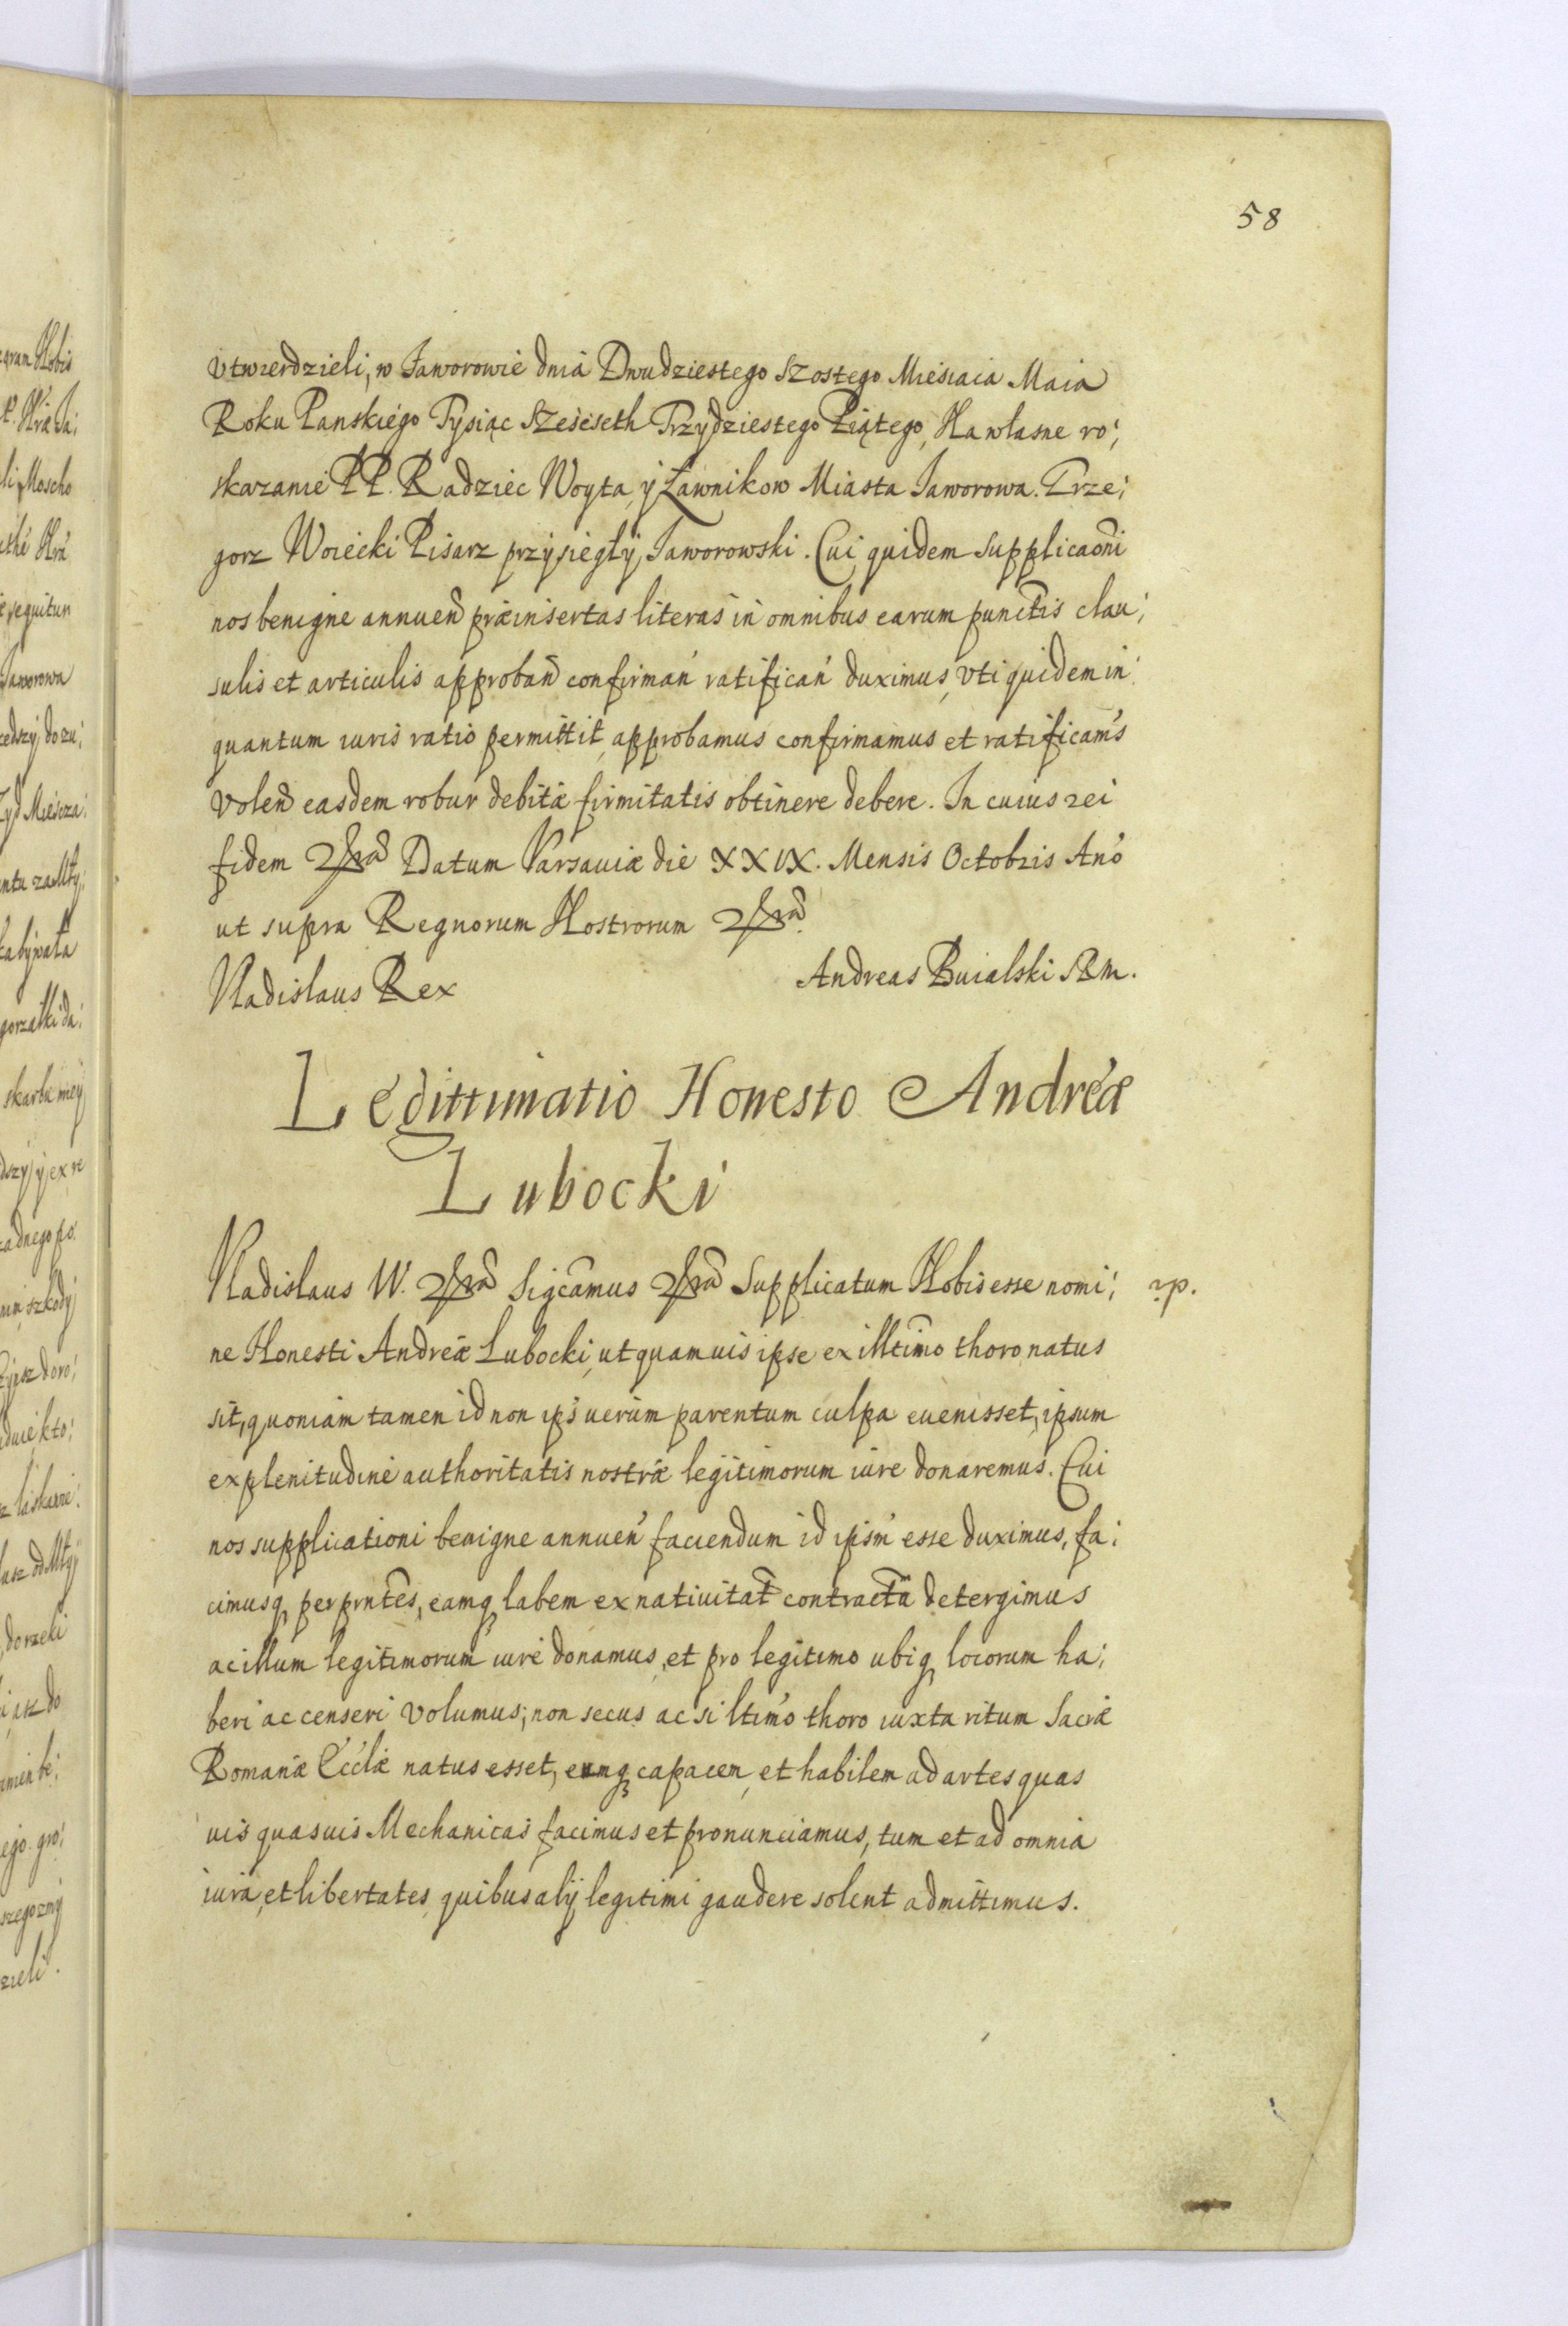 58
Vtwierdzieli, w Jaworowie dnia Dwudziestego Szostego Miesiaca Maia
Roku Panskiego Tysiąc Szescseth Trzydziestego Piątego, Na własne ro¡
skazanie PP. Radziec Woyta, y Ławnikow Miasta Jaworowa. Grze¡
gorz Woiecki Pisarz przysięgły Jaworowski. Cui quidem supplicaoñi
nos benigne annueñ præinsertas literas in omnibus earum punctis clau¡
sulis et articulis approbañ confirmań ratificań duximus, vti quidem in
quantum iuris ratio permittit, approbamus confirmamus et ratificam's
Voleñ easdem robur debitæ firmitatis obtinere debere. In cuius rei
fidem Datum Varsaviæ die XXIX. Mensis Octobris Anó
ut supra Regnorum Nostrorum
Vladislaus Rex Andreas Buialski SRM.
Legittimatio Honesto Andreæ
Lubocki
Vladislaus IV. Sigcãmus Supplicatum Nobis esse nomi¡
ne Honesti Andreæ Lubocki, ut quamuis ipse ex illtimo thoro natus
sit, quoniam tamen id non ips' uerùm parentum culpa euenisset, ipsum
ex plenitudine authoritatis nostræ legitimorum iure donaremus. Cui
nos supplicationi benigne annueń faciendum id ipsm' esse duximus, fa¡
cimusq, per prntẽs, eamq labem ex natiuitat̃ contractã detergimus
ac illum legitimorum iure donamus, et pro legitimo ubiq locorum ha¡
beri ac censeri Volumus; non secus ac si ltimó thoro iuxta ritum Sacræ
Romanæ Eccl'iæ natus esset, eumq capacem et habilem ad artes quas
uis quasuis Mechanicas facimus et pronunciamus, tum et ad omnia
iura, et libertates, quibus alij legitimi gaudere solent admittimus.